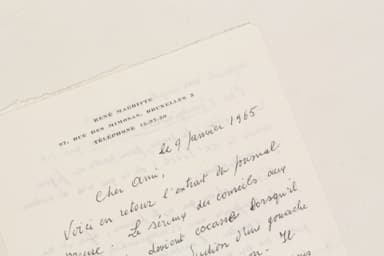 RENÉ MAGRITTE
97, RUE DES MIMOSAS, BRUXELLES 3
TÉLÉPHONE 15.97.30
le 9 janvier 1965
Cher Ami,
Voici en retour l'extrait de journal
Le sérieux des conseils aux
devient cocasse lorsqu'il
d'une gouache
Il